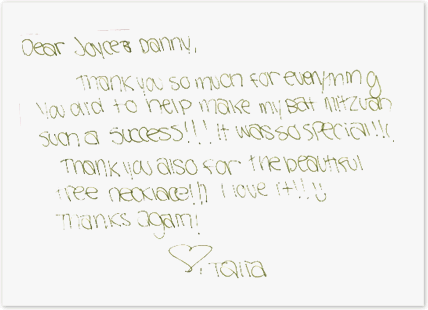 Dear Joyce & Danny,
Thank you so much for everything
you did to help make my Bat Mitzvah
such a success!!! It was so special!!!
Thank you also for the beautiful
tree necklace!!! I love it!!! :)
Thanks again!
♡, Talia